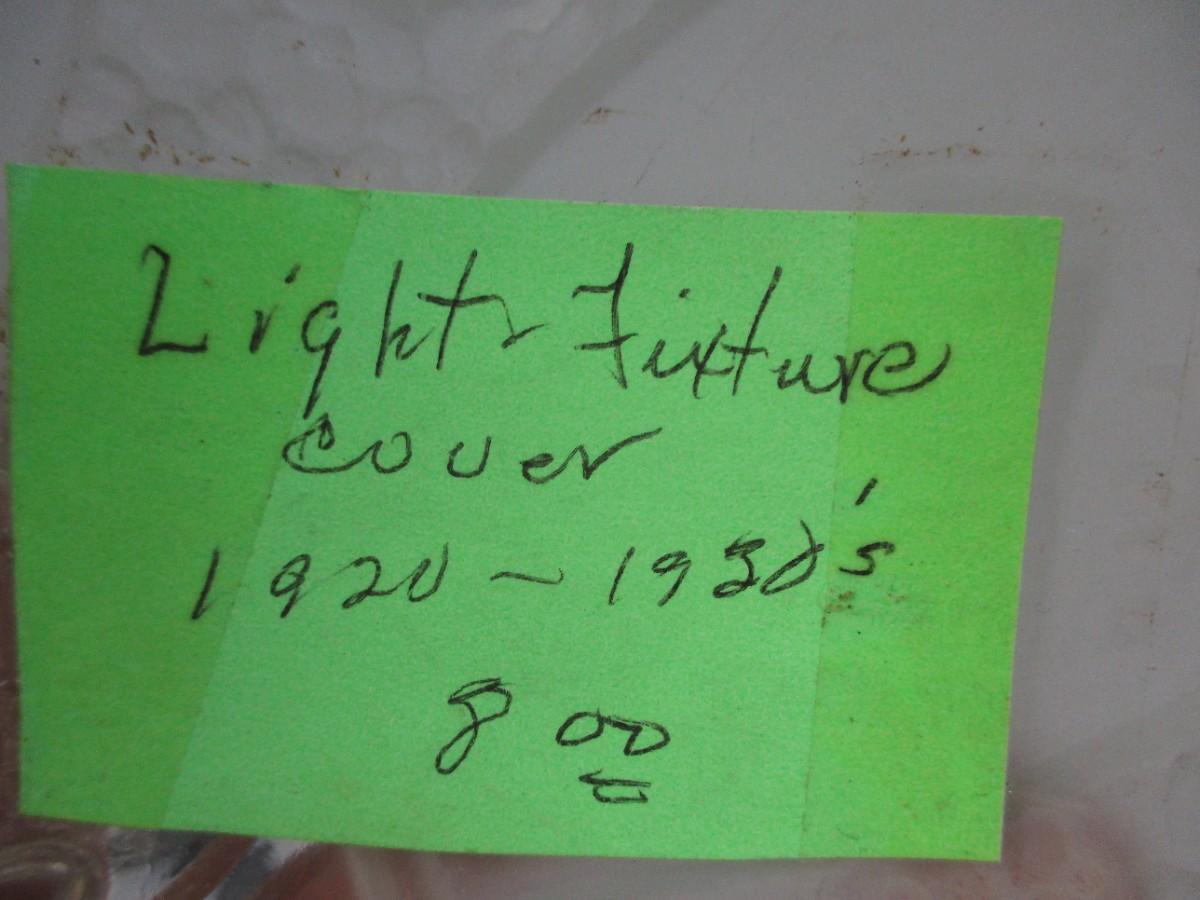 Light Fixture
cover
1920 ~ 1930's
8 00